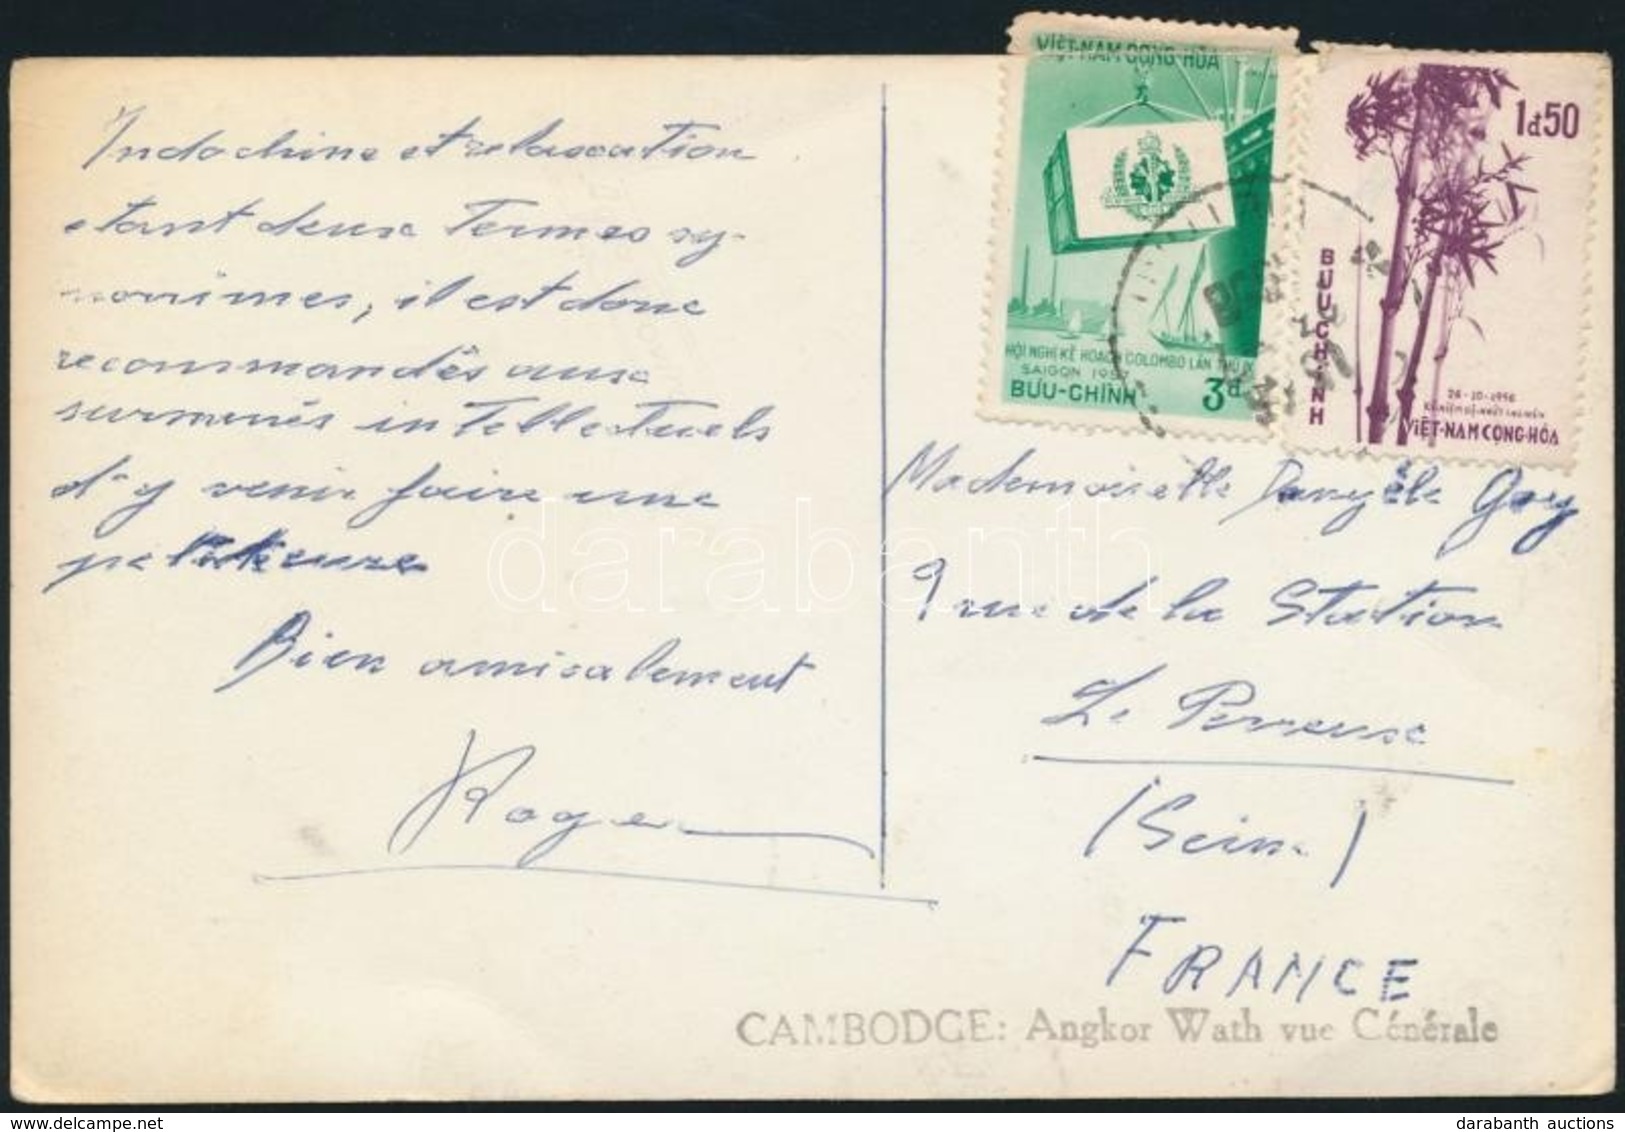 Indochine et relaxation
étant deux termes sy-
nonimes, il est donc
recommandés aux
surmenés intellectuels
d'y venir faire une
petite cure
Bien amicalement
Roger
VIỆT-NAM CỘNG-HÒA
HỘI NGHỊ KẾ HOẠCH COLOMBO LẦN THỨ IX
SAIGON 1957
BƯU-CHÍNH 3đ
1đ50
BƯU CHÍNH
26-10-1956
VIỆT-NAM CỘNG-HÒA
Mademoiselle Danyèle Goy
9 rue de la Station
Le Perreux
(Seine)
FRANCE
CAMBODGE: Angkor Wath vue Générale
darabanth
darabanth auctions